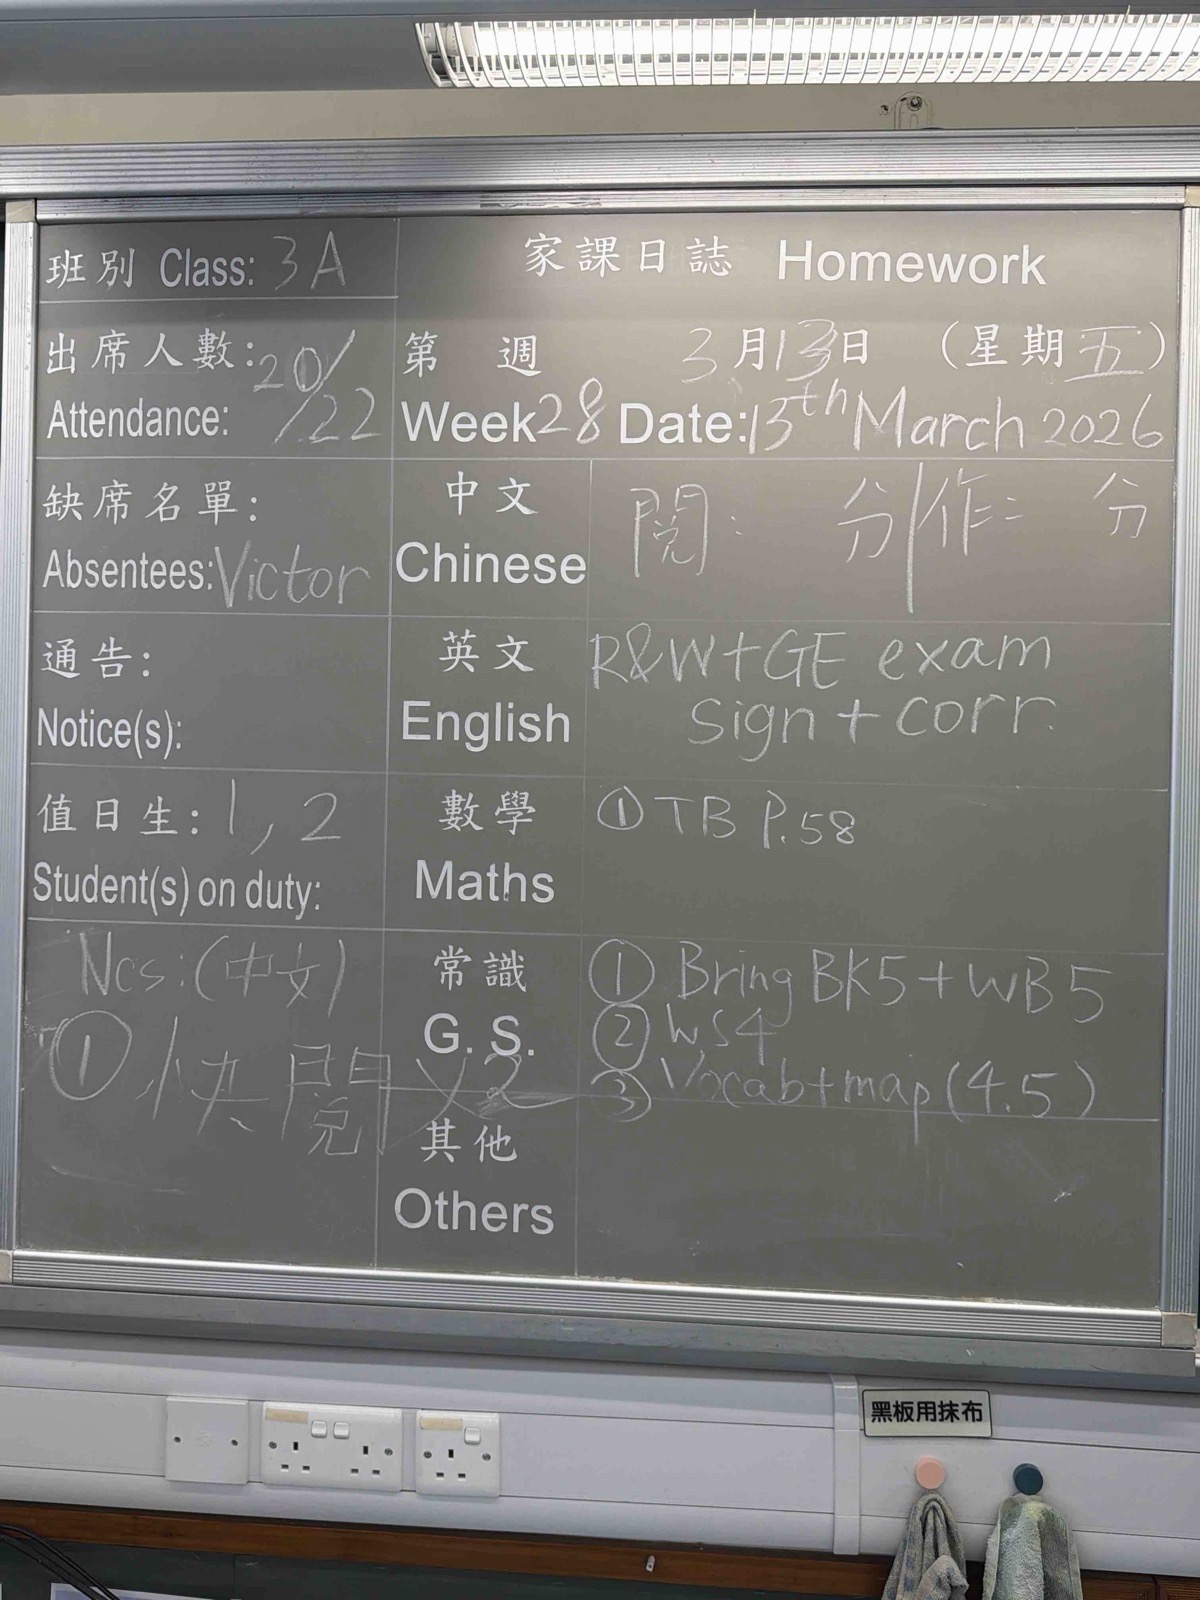 班別 Class: 3A
家課日誌 Homework
出席人數: 20/22
Attendance:
第 週 3月13日 (星期五)
Week 28 Date: 13th March 2026
缺席名單:
Absentees: Victor
中文 閱: 分/作: 分
Chinese
通告:
Notice(s):
英文 R&W+GE exam
English sign + corr.
值日生: 1, 2
Student(s) on duty:
數學 ① TB P.58
Maths
Ncs:(中文)
① 快閱 x2
常識 ① Bring BK5+WB5
G. S. ② WS4
③ Vocab+map (4.5)
其他
Others
黑板用抹布